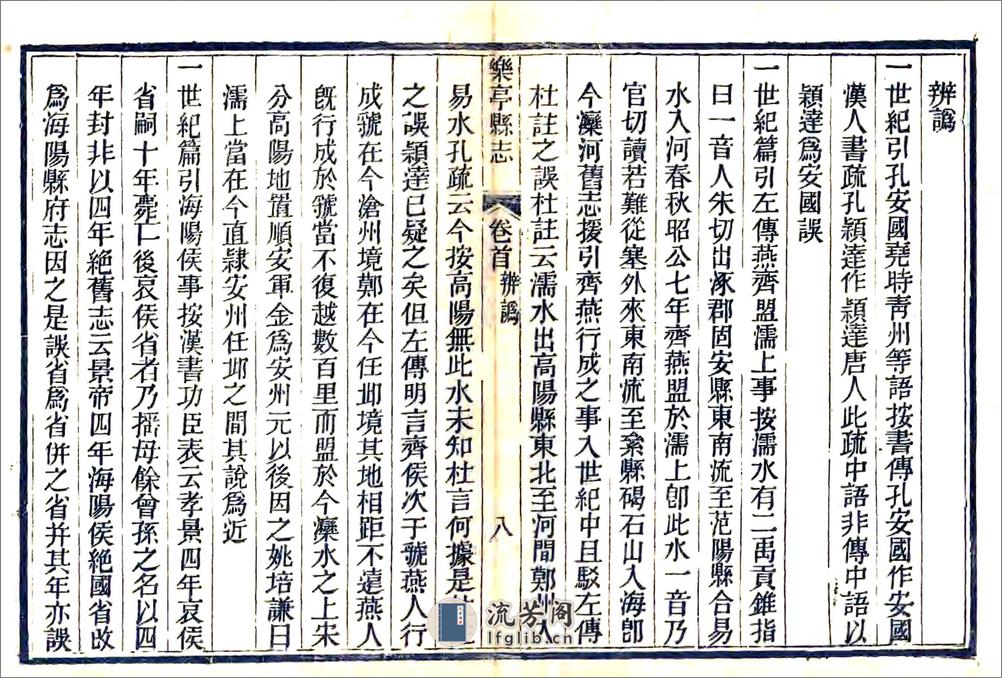 辨譌
一世紀引孔安國堯時靑州等語按書傳孔安國作安國
漢人書疏孔穎達作穎達唐人此疏中語非傳中語以
穎達爲安國誤
一世紀篇引左傳燕齊盟濡上事按濡水有二禹貢錐指
曰一音人朱切出涿郡固安縣東南流至范陽縣合易
水入河春秋昭公七年齊燕盟於濡上卽此水一音乃
官切讀若難從塞外來東南流至絫縣碣石山入海卽
今灤河舊志援引齊燕行成之事入世紀中且駁左傳
杜註之誤杜註云濡水出高陽縣東北至河間鄚州入
樂亭縣志
卷首
辨譌
八
易水孔疏云今按高陽無此水未知杜言何據是
之誤穎達已疑之矣但左傳明言齊侯次于虢燕人行
成虢在今滄州境鄚在今任邱境其地相距不遠燕人
旣行成於虢當不復越數百里而盟於今灤水之上宋
分高陽地置順安軍金爲安州元以後因之姚培謙曰
濡上當在今直隸安州任邱之間其說爲近
一世紀篇引海陽侯事按漢書功臣表云孝景四年哀侯
省嗣十年薨仁後哀侯省者乃搖母餘曾孫之名以四
年封非以四年絕舊志云景帝四年海陽侯絕國省改
爲海陽縣府志因之是誤省爲省併之省并其年亦誤
流芳阁
lfglib.cn